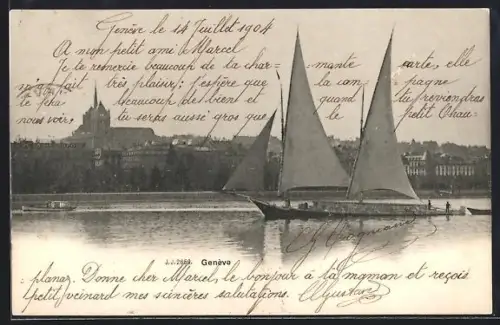 Genève le 14 Juillet 1904
A mon petit ami Marcel
Je te remercie beaucoup de la char- mante carte, elle
m'a fait très plaisir; j'espère que la cam pagne
te fera beaucoup de bien et quand tu reviendras
nous voir, tu seras aussi gros que le petit Chau-
J.J. Genève
planaz. Donne cher Marcel, le bonjour à ta maman et reçois
petit veinard mes sincères salutations. Gustave